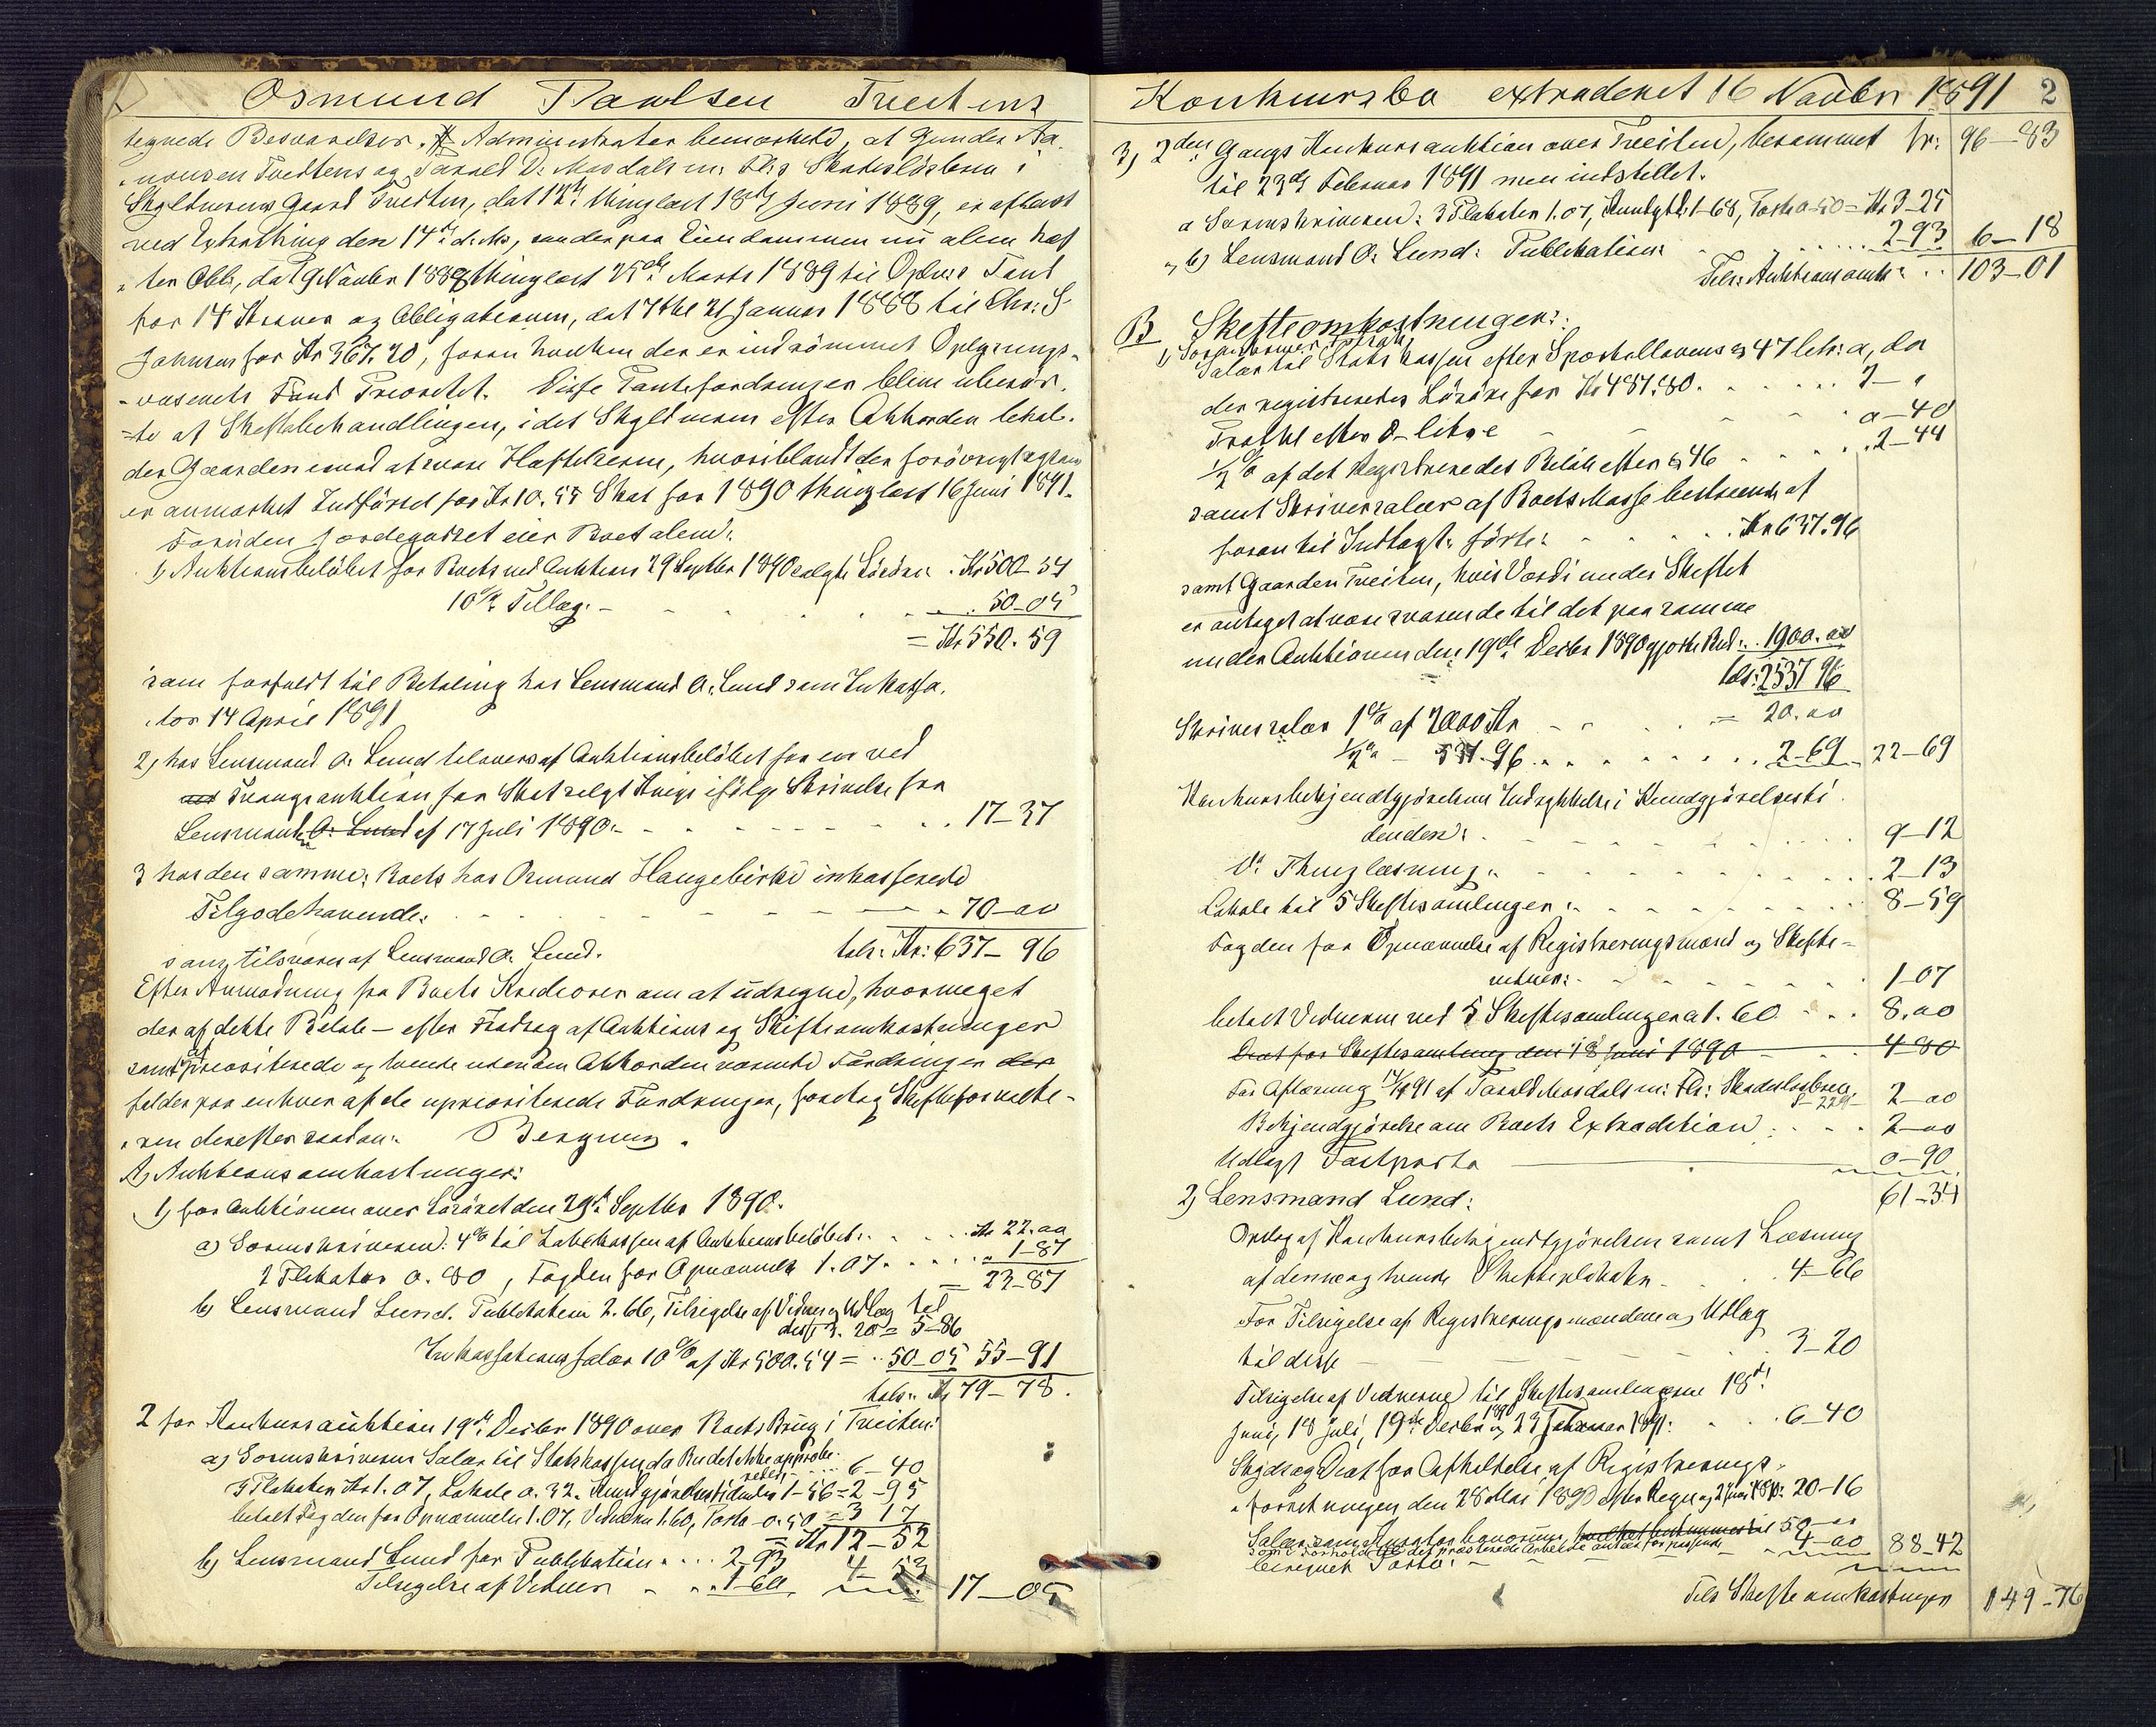 Osmund Paulsen Tveitens
tegnede Besvarelser. Administrator bemærkede, at Gunder Aa-
nonsen Tvedtens og Tarald D. Mosdals m. Fl.s Skadesløsbrev i
Skyldnerens Gaard Tvedten, dat 12te thinglæst 18de Juni 1889, er aflæst
ved Extrathing den 14de d. M., saa der paa Eiendommen nu alene hef-
ter Obl., dat 9 Novbr 1888 thinglæst 25de Marts 1889 til Oplys. Fond
for 14 Kroner og Obligationen, dat 7 thl 21 Januar 1888 til Chr. S.
Johnsen for Kr 367.20, foran hvilken der er indrømmet Oplysnings-
væsenets Fond Prioritet. Disse Pantefordringer blive uberør-
te af Skiftebehandlingen, idet Skyldneren efter Akkorden behol-
der Gaarden imod at svare Heftelserne, hvoriblandt der forøvrigt ogsaa
er anmærket Indførsel for Kr 10.55 Skat for 1890 thinglæst 16 Juni 1891.
Foruden Jordegodset eier Boet alene:
1) Auktionsbeløbet for Boets ved Auktion 29 Septbr 1890 solgte Løsøre . Kr 500-54
10% Tillæg - 50-05
= Kr 550.59
som forfaldt til Betaling hos Lensmand O. Lund som Inkassa-
tor 14 April 1891
2) hos Lensmand O. Lund tilovers af Auktionsbeløbet for en ved
ved Tvangsauktion for Skat solgt Kvige ifølge Skrivelse fra
Lensmand O. Lund af 17 Juli 1890 - 17-37
3 hos den samme, Boets hos Osmund Haugebirke inkasserede
Tilgodehavende: 70-00
som tilsvares af Lensmand O. Lund. tils: Kr: 637-96
Efter Anmodning fra Boets Kreditorer om at udregne, hvormeget
der af dette Beløb - efter Fradrag af Auktions og Skifteomkostninger
samt af prioriterede og hvende udenom Akkorden værende Fordringer der
falder paa enhver af de uprioriterede Fordringer, foretog Skifteforvalte-
ren derefter saadan: Beregning.
A) Auktionsomkostninger:
1) for Auktionen over Løsøret den 29de Septbr 1890.
a) Sorenskriveren: 4% til Statskassen af Auktionsbeløbet: Kr 22.00
2 Plakater 0.80, Fogden for Opnævnelse 1.07 1-87
= 23-87
b) Lensmand Lund. Publikation 2.66, Tilsigelse af Vidner og Udlæg til
disse 3.20 = 5-86
Inkassationssalær 10% af Kr 500.54 = 50-05 55-91
tils: Kr 79-78.
2 for Konkursauktion 19de Decbr 1890 over Boets Brug i Tveiten:
a) Sorenskriveren Salær til Statskassen, da Budet ikke approbe-
redes 6-40
3 Plakater Kr 1.07, Lokale 0.32. Kundgjørelsestidende 1-56 = 2-95
betalt Fogden for Opnævnelse 1.07, Vidnerne 1.60, Porto 0.50 = 3 17
= Kr 12-52
b) Lensmand Lund for Publikation 2-93
Tilsigelse af Vidner 1-60 4-53 17-05
Konkursbo extraderet 16 Novbr 1891 2
3) 2den Gangs Konkursauktion over Tveiten, berammet Kr: 96-83
til 23de Februar 1891 men indstillet.
a Sorenskriveren: 3 Plakater 1.07, Kundgt. 1-68, Porto 0-50 = Kr 3-25
b) Lensmand O. Lund: Publikation 2-93 6-18
Tils: Auktionsomk: 103-01
B Skifteomkostninger:
1) Sorenskriveren
Salær til Statskassen efter Sportellovens § 47 litr: a, da
den registrerede Løsøre for Kr 487.80. 2-"
Trafht efter D-litr e 0-40
1/2% af det Registreredes Beløb efter § 46 2-44
samt Skriversalær af Boets Masse bestaaende af
foran til Indtægt førte: Kr 637.96
samt Gaarden Tveiten, hvis Værdi under Skiftet
er antaget at være svarende til det paa samme
under Auktionen den 19de Decbr 1890 gjorte Bud: 1900.00
tils: 2537 96
Skriversalær 1% af 2000 Kr = 20.00
1/2% - 537.96 2-69 22-69
Konkursbekjendtgjørelsens Indrykkelse i Kundgjørelsesti-
denden: 9-12
Do Thinglæsning: 2-13
Lokale til 5 Skiftesamlinger: 8-59
Fogden for Opnævnelse af Registreringsmænd og Skifte-
vidner: 1-07
betalt Vidnerne ved 5 Skiftesamlinger a 1.60 8.00
Diæt for Skiftesamling den 18 Juni 1890 4-80
For Aflæsning 91 af Tarald Mosdals m: Fl: Skadesløsbrev 2-00
Bekjendtgjørelse om Boets Extradition 2-00
Udlagt Postporto 0-90
61-34
2) Lensmand Lund:
Opslag af Konkursbekjendtgjørelsen samt Læsning
af denne og hvende Skifteplakater 4-66
For Tilsigelse af Registreringsmændene og Udlæg
til disse 3-20
Tilsigelse af Vidnerne til Skiftesamlingerne 18de
Juni, 18 Juli, 19de Decbr 1890 og 23 Februar 1891: 6-40
Skyds og Diæt for Afholdelse af Registrerings-
forretningen den 28 Mai 1890 efter Regn. 20-16
Salær som Kurator bonorum 50-00
beregnet Porto: 4-00 88-42
Tils Skifteomkostninger 149-76